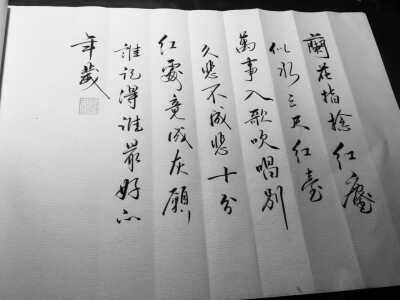 蘭花指捻紅塵
似水三尺紅臺
萬事入歌吹唱別
久悲不成悲十分
紅處竟成灰願
誰記得誰最好的
年歲